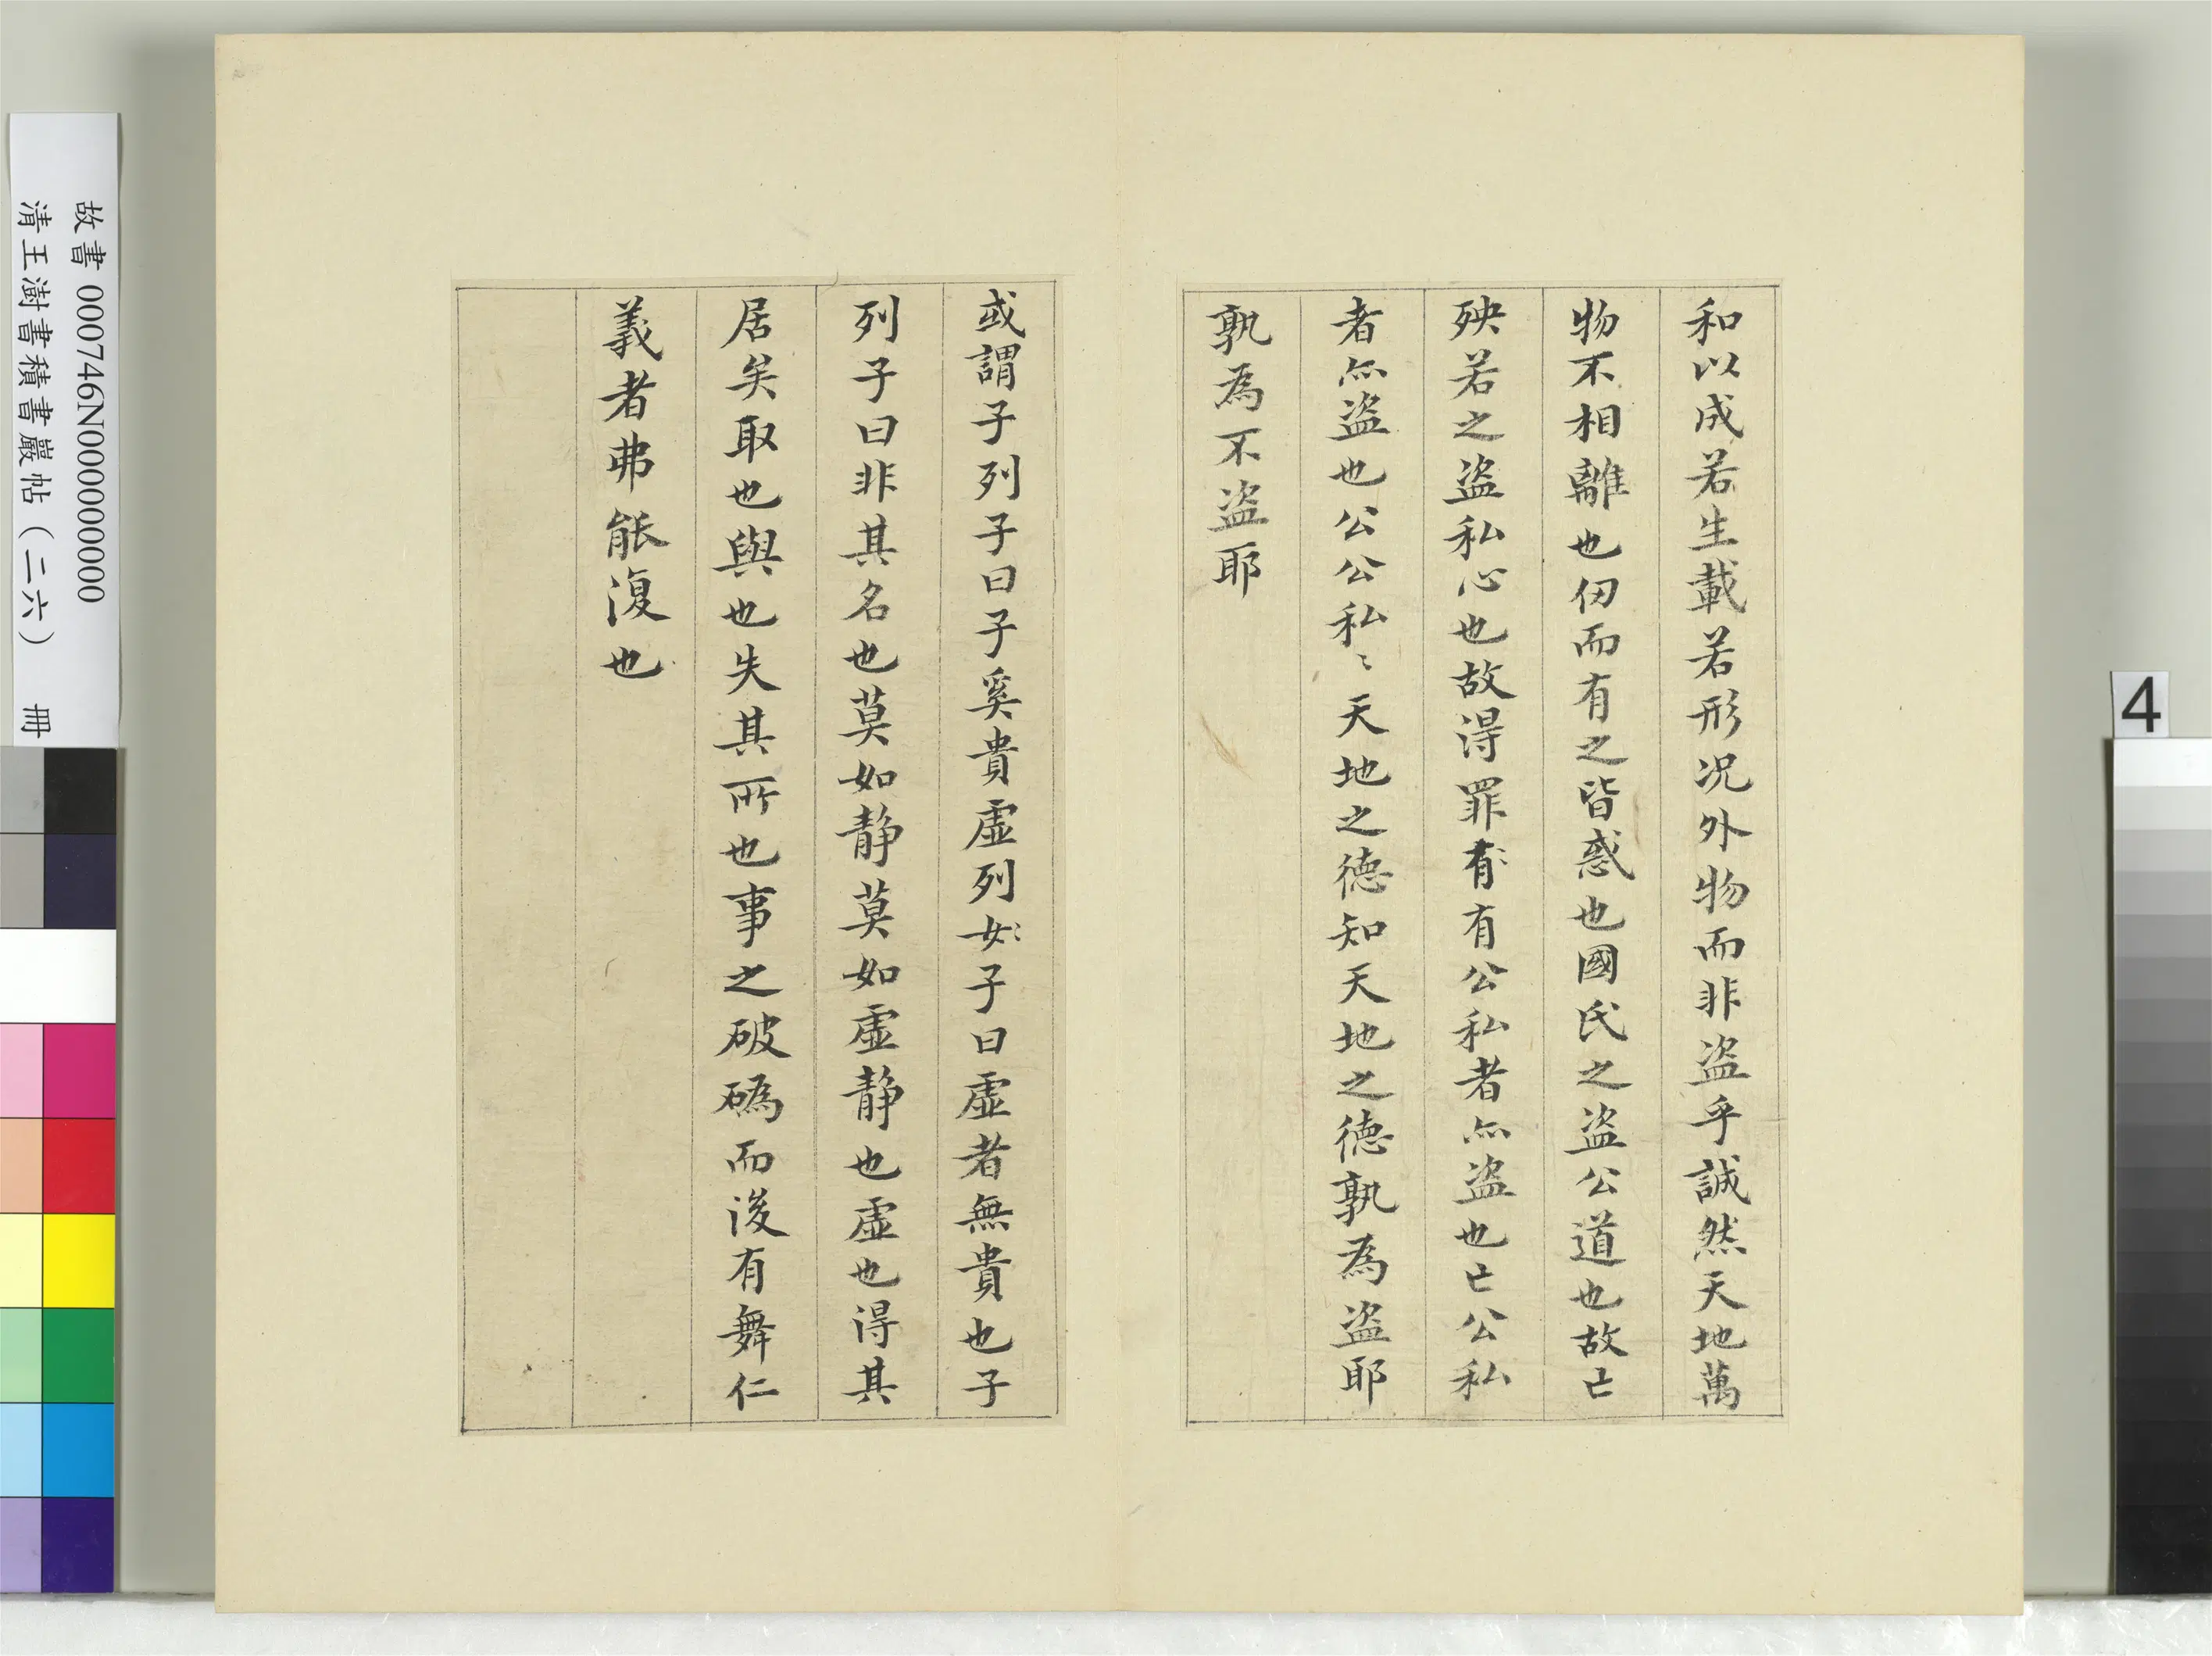 和以成若生載若形况外物而非盗乎誠然天地萬
物不相離也仞而有之皆惑也國氏之盗公道也故亡
殃若之盗私心也故得罪有有公私者亦盗也亡公私
者亦盗也公公私〻天地之德知天地之德孰為盗耶
孰為不盗耶
或謂子列子曰子奚貴虛列女〻子曰虛者無貴也子
列子曰非其名也莫如静莫如虛静也虛也得其
居矣取也與也失其所也事之破䃣而後有舞仁
義者弗能復也
故書 000746N000000000
清王澍書積書巖帖（二六） 冊
4